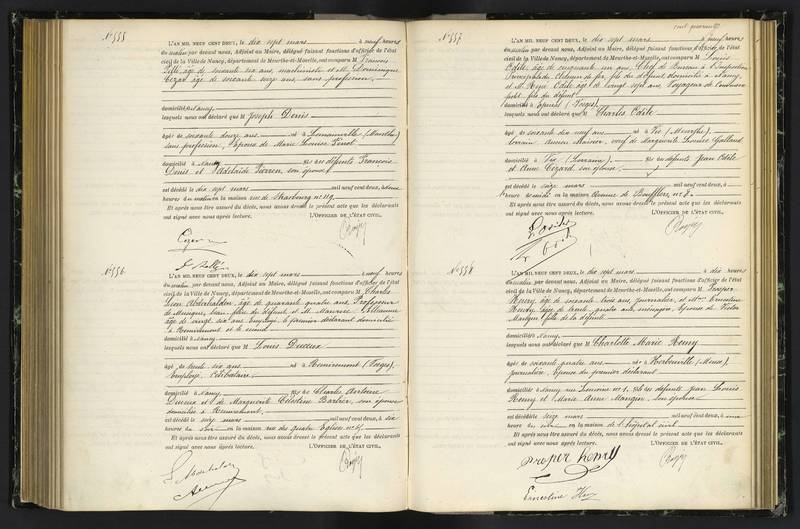 N° 555
L'AN MIL NEUF CENT DEUX, le dix sept mars à neuf heures
du matin par devant nous, Adjoint au Maire, délégué faisant fonctions d'officier de l'état
civil de la Ville de Nancy, département de Meurthe-et-Moselle, ont comparu M François
âgé de soixante six ans, machiniste et M Dominique
Cezar âgé de soixante onze ans, sans profession,
domiciliés à Nancy
lesquels nous ont déclaré que M Joseph Denis
âgé de soixante douze ans né à (Meurthe)
sans profession, époux de Marie Louise
domicilié à Nancy fils des défunts François
Denis et Adélaïde son épouse
est décédé le dix sept mars mil neuf cent deux, à
heures du matin en la maison rue de Strasbourg n° 119
Et après nous être assuré du décès, nous avons dressé le présent acte que les déclarants
ont signé avec nous après lecture. L'OFFICIER DE L'ÉTAT CIVIL,
N° 556
L'AN MIL NEUF CENT DEUX, le dix sept mars à neuf heures
du matin par devant nous, Adjoint au Maire, délégué faisant fonctions d'officier de l'état
civil de la Ville de Nancy, département de Meurthe-et-Moselle, ont comparu M Charles
Léon âgé de quarante quatre ans, Professeur
de Musique, beau-frère du défunt et M Maurice
âgé de vingt six ans employé le premier déclarant domicilié
à Remiremont et le second
domicilié à Nancy
lesquels nous ont déclaré que M Louis Duceux
âgé de trente six ans né à Remiremont (Vosges),
Employé, Célibataire
domicilié à Nancy fils de Charles Antoine
Duceux et de Marguerite Célestine Barbier, son épouse
domiciliés à Remiremont,
est décédé le seize mars mil neuf cent deux, à six
heures du soir en la maison rue des quatre Eglises n°
Et après nous être assuré du décès, nous avons dressé le présent acte que les déclarants
ont signé avec nous après lecture. L'OFFICIER DE L'ÉTAT CIVIL,
cent quarante
N° 557
L'AN MIL NEUF CENT DEUX, le dix sept mars à neuf heures
du matin par devant nous, Adjoint au Maire, délégué faisant fonctions d'officier de l'état
civil de la Ville de Nancy, département de Meurthe-et-Moselle, ont comparu M Louis
Odile, âgé de cinquante un ans, Chef de Bureau à l'Inspection
Principale Chemin de fer, fils du défunt domicilié à Nancy,
et M René Odile âgé de vingt sept ans, Voyageur de Commerce
petit fils du défunt
domicilié à Epinal (Vosges)
lesquels nous ont déclaré que M Charles Odile
âgé de soixante dix neuf ans né à Vic (Meurthe)
Lorrain, ancien veuf de Marguerite Louise Galland
domicilié à Vic (Lorraine) fils des défunts Jean Odile
et Anne Cezard son épouse
est décédé le seize mars mil neuf cent deux, à
heures en la maison Avenue de Boufflers, n° 8
Et après nous être assuré du décès, nous avons dressé le présent acte que les déclarants
ont signé avec nous après lecture. L'OFFICIER DE L'ÉTAT CIVIL,
N° 558
L'AN MIL NEUF CENT DEUX, le dix sept mars à dix heures
du matin par devant nous, Adjoint au Maire, délégué faisant fonctions d'officier de l'état
civil de la Ville de Nancy, département de Meurthe-et-Moselle, ont comparu M Prosper
Henry, âgé de soixante trois ans, journalier, et Mme Ernestine
Henry âgée de trente quatre ans ménagère, épouse de Victor
Mangin fille de la défunte
domiciliés à Nancy
lesquels nous ont déclaré que M Charlotte Marie Remy
âgée de soixante quatre ans née à Herbeuville (Meuse),
journalière, épouse du premier déclarant
domiciliée à Nancy rue n° 1, fille des défunts Jean Louis
Remy et Marie Anne Mangin son épouse
est décédée le seize mars mil neuf cent deux, à une
heure du soir en la maison de l'hôpital civil
Et après nous être assuré du décès, nous avons dressé le présent acte que les déclarants
ont signé avec nous après lecture. L'OFFICIER DE L'ÉTAT CIVIL,
Prosper henry
Ernestine